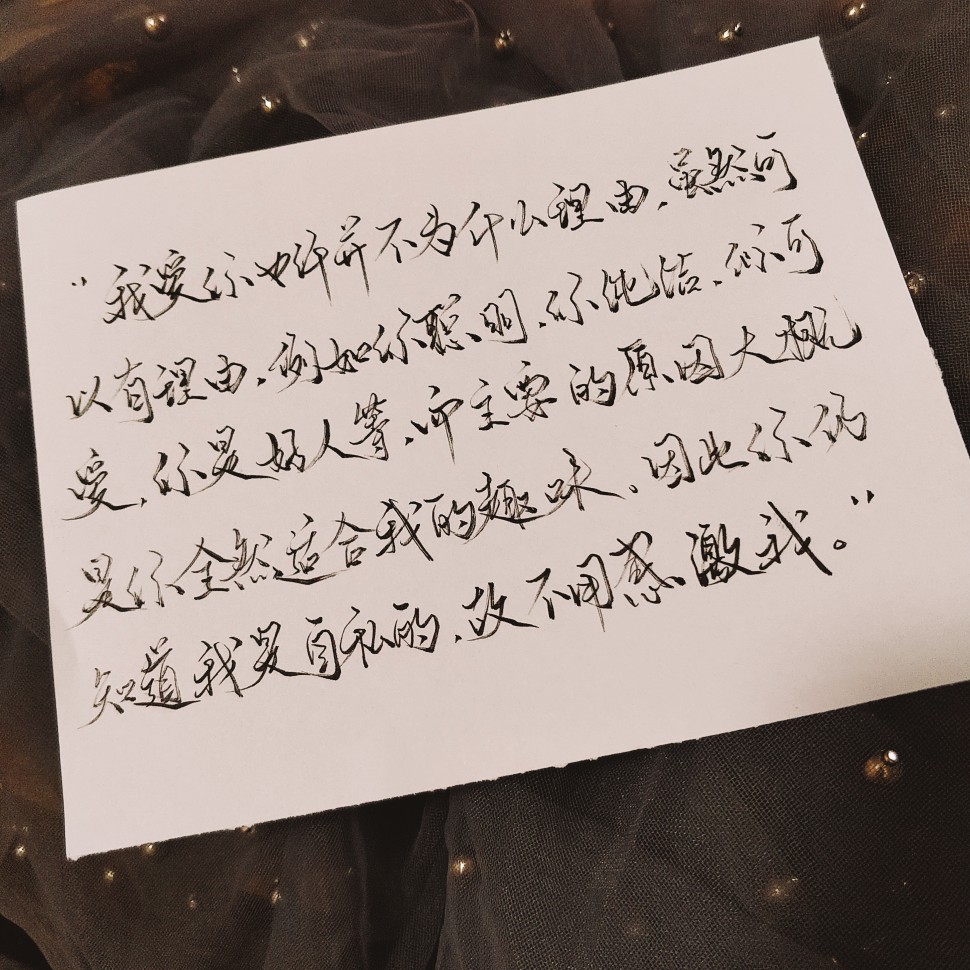 “我爱你也许并不为什么理由，虽然可
以有理由，例如你聪明，你纯洁，你可
爱，你是好人等，但主要的原因大概
是你全然适合我的趣味。因此你仍
知道我是自私的，故不用感激我。”